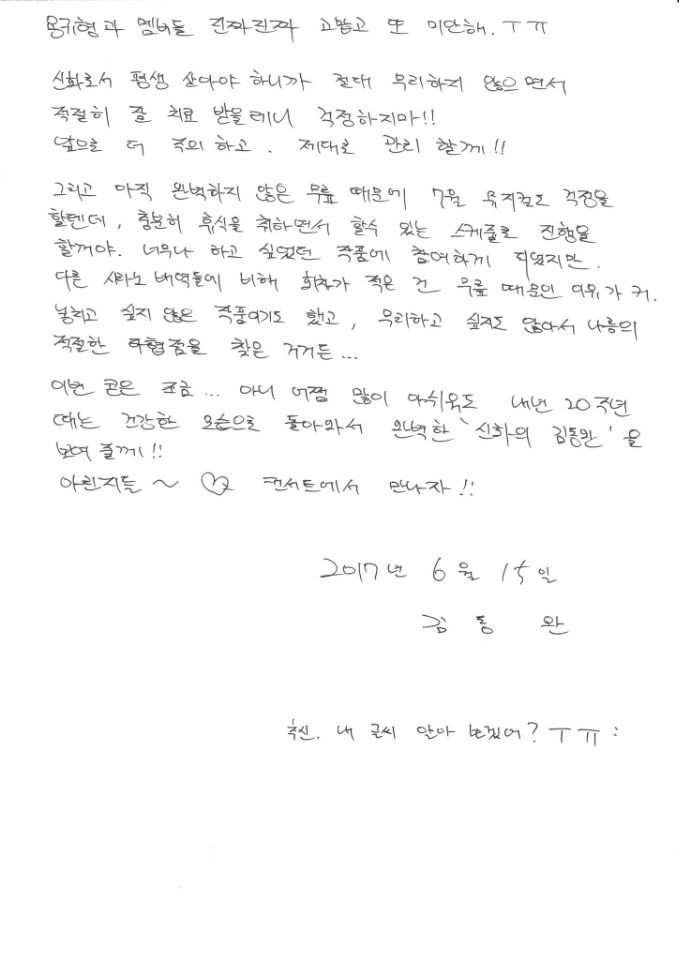 용규형과 멤버들 진짜진짜 고맙고 또 미안해. ㅜㅠ
신화로서 평생 살아야 하니까 절대 무리하지 않으면서
적절히 잘 치료 받을테니 걱정하지마!!
앞으로 더 주의 하고. 제대로 관리 할께!!
그리고 아직 완벽하지 않은 무릎 때문에 7월 뮤지컬도 걱정을
할텐데, 충분히 휴식을 취하면서 할수 있는 스케줄로 진행을
할꺼야. 너무나 하고 싶었던 작품에 참여하게 되었지만.
다른 시라노 배역들에 비해 회차가 적은 건 무릎 때문인 이유가 커.
놓치고 싶지 않은 작품이기도 했고, 무리하고 싶지도 않아서 나름의
적절한 타협점을 찾은 거거든...
이번 콘은 조금... 아니 어쩜 많이 아쉬워도 내년 20주년
때는 건강한 모습으로 돌아와서 완벽한 '신화의 김동완'을
보여 줄께!!
아린지들 ~ ♡ 컨서트에서 만나자!!
2017년 6월 15일
김 동 완
추신. 내 글씨 알아 보겠어? ㅜㅠ :